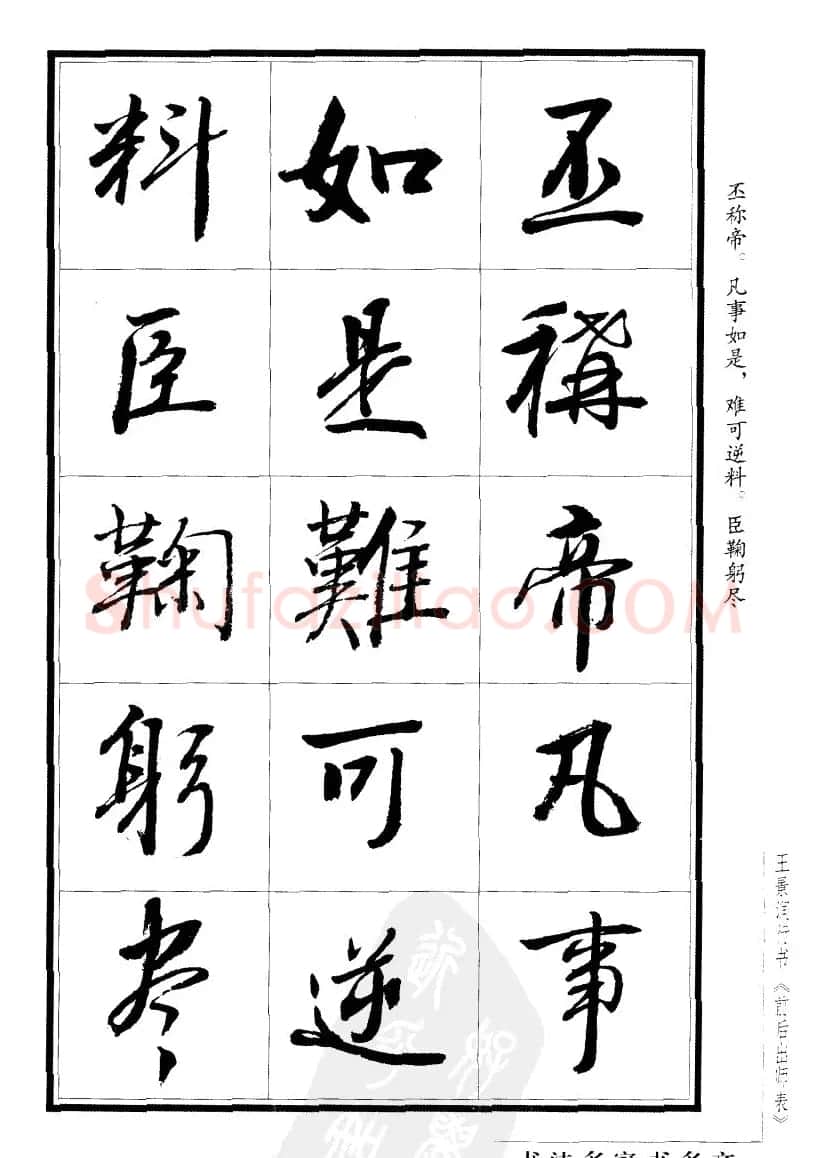 丕稱帝凡事
如是難可逆
料臣鞠躬盡
丕称帝。凡事如是，难可逆料。臣鞠躬尽
王景浔行书《前后出师表》
Shufaziliao.COM